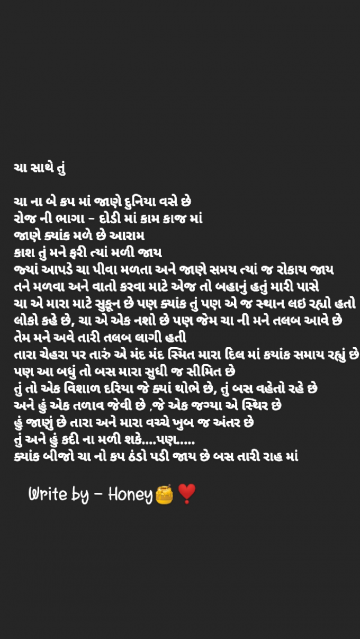 ચા સાથે તું
ચા ના બે કપ માં જાણે દુનિયા વસે છે
રોજ ની ભાગા - દોડી માં કામ કાજ માં
જાણે ક્યાંક મળે છે આરામ
કાશ તું મને ફરી ત્યાં મળી જાય
જ્યાં આપડે ચા પીવા મળતા અને જાણે સમય ત્યાં જ રોકાય જાય
તને મળવા અને વાતો કરવા માટે એજ તો બહાનું હતું મારી પાસે
ચા એ મારા માટે સુકૂન છે પણ ક્યાંક તું પણ એ જ સ્થાન લઇ રહ્યો હતો
લોકો કહે છે, ચા એ એક નશો છે પણ જેમ ચા ની મને તલબ આવે છે
તેમ મને અવે તારી તલબ લાગી હતી
તારા ચેહરા પર તારું એ મંદ મંદ સ્મિત મારા દિલ માં કયાંક સમાય રહ્યું છે
પણ આ બધું તો બસ મારા સુધી જ સીમિત છે
તું તો એક વિશાળ દરિયા જે ક્યાં થોભે છે, તું બસ વહેતો રહે છે
અને હું એક તળાવ જેવી છે .જે એક જગ્યા એ સ્થિર છે
હું જાણું છે તારા અને મારા વચ્ચે ખુબ જ અંતર છે
તું અને હું કદી ના મળી શકે....પણ.....
ક્યાંક બીજો ચા નો કપ ઠંડો પડી જાય છે બસ તારી રાહ માં
Write by - Honey🍯❣️